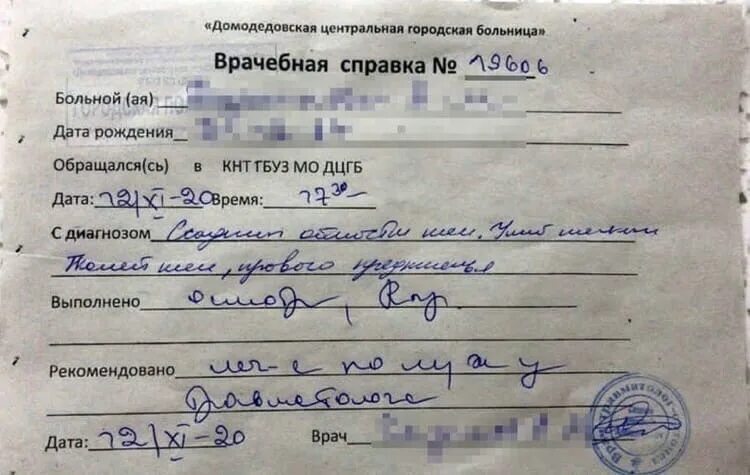 «Домодедовская центральная городская больница»
Врачебная справка № 19606
Больной (ая)
Дата рождения
Обращался(сь) в КНТ ГБУЗ МО ДЦГБ
Дата: 12/XI-20 Время: 17 30
С диагнозом Ссадины области шеи. Ушиб мягких
тканей шеи, правого предплечья
Выполнено осмотр, Rгр
Рекомендовано леч-е по м/ж у
травматолога
Дата: 12/XI-20 Врач